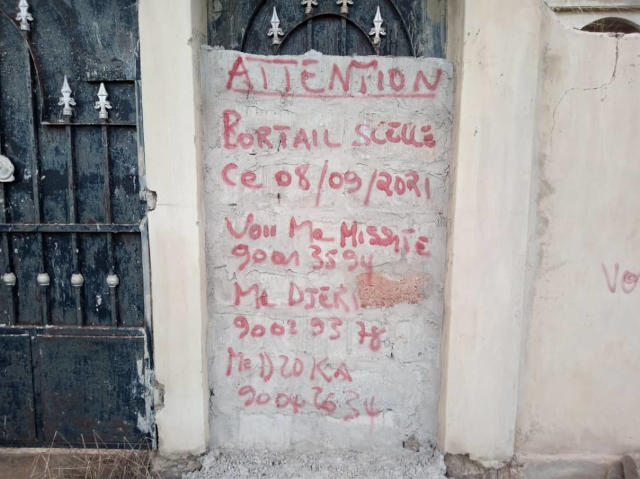 ATTENTION
PORTAIL SCELLE
Ce 08/09/2021
Voir Me MISSITE
9001 35 94
Me DJEKI
9002 93 78
Me DZOKA
9004 26 34
VO